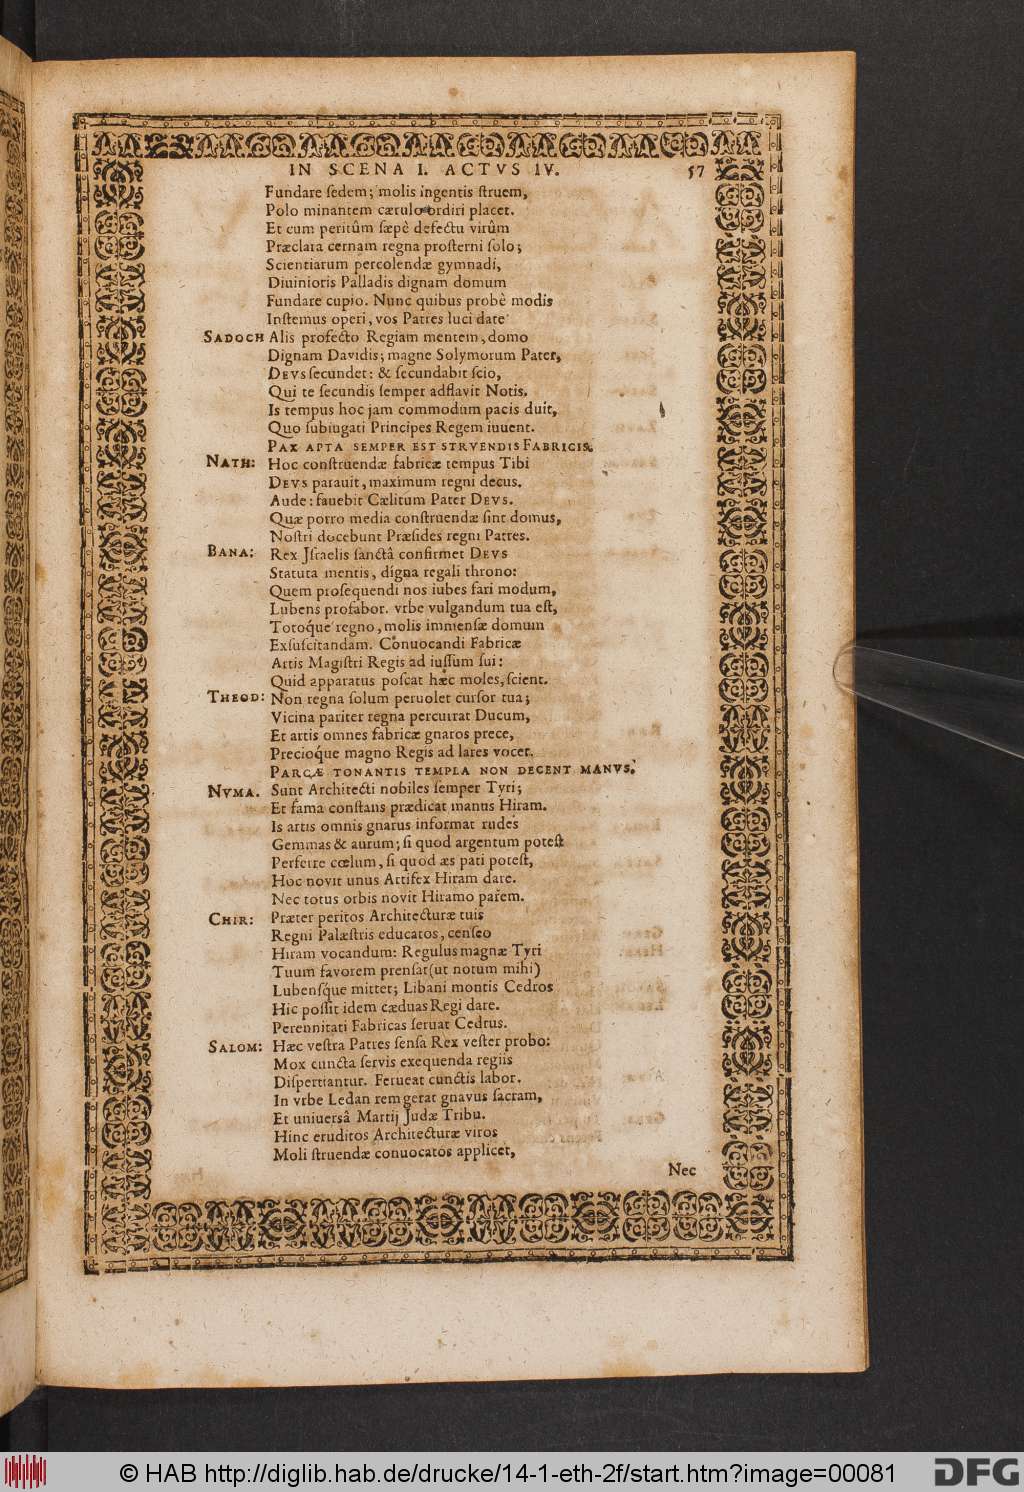 IN SCENA I. ACTVS IV. 57
Fundare ſedem; molis ingentis ſtruem,
Polo minantem cærulo ordiri placet.
Et cum peritûm ſæpè defectu virûm
Præclara cernam regna proſterni ſolo;
Scientiarum percolendæ gymnadi,
Diuinioris Palladis dignam domum
Fundare cupio. Nunc quibus probè modis
Inſtemus operi, vos Patres luci date
SADOCH Alis profecto Regiam mentem, domo
Dignam Davidis; magne Solymorum Pater,
DEVS ſecundet: & ſecundabit ſcio,
Qui te ſecundis ſemper adflavit Notis.
Is tempus hoc jam commodum pacis duit,
Quo ſubiugati Principes Regem iuuent.
PAX APTA SEMPER EST STRVENDIS FABRICIS.
NATH: Hoc conſtruendæ fabricæ tempus Tibi
DEVS parauit, maximum regni decus.
Aude: fauebit Cælitum Pater DEVS.
Quæ porro media conſtruendæ ſint domus,
Noſtri docebunt Præſides regni Patres.
BANA: Rex Jſraelis ſanctâ confirmet DEVS
Statuta mentis, digna regali throno:
Quem proſequendi nos iubes fari modum,
Lubens profabor. vrbe vulgandum tua eſt,
Totoq́ue regno, molis immenſæ domum
Exſuſcitandam. Convocandi Fabricæ
Artis Magiſtri Regis ad iuſſum ſui:
Quid apparatus poſcat hæc moles, ſcient.
THEOD: Non regna ſolum peruolet curſor tua;
Vicina pariter regna percurrat Ducum,
Et artis omnes fabricæ gnaros prece,
Precioq́ue magno Regis ad lares vocet.
PARCÆ TONANTIS TEMPLA NON DECENT MANVS.
NVMA. Sunt Architecti nobiles ſemper Tyri;
Et fama conſtans prædicat manus Hiram.
Is artis omnis gnarus informat rudes
Gemmas & aurum; ſi quod argentum poteſt
Perferre cœlum, ſi quod æs pati poteſt,
Hoc novit unus Artifex Hiram dare.
Nec totus orbis novit Hiramo parem.
CHIR: Præter peritos Architecturæ tuis
Regni Palæſtris educatos, cenſeo
Hiram vocandum: Regulus magnæ Tyri
Tuum favorem prenſat (ut notum mihi)
Lubenſq́ue mittet; Libani montis Cedros
Hic poſſit idem cæduas Regi dare.
Perennitati Fabricas ſeruat Cedrus.
SALOM: Hæc veſtra Patres ſenſa Rex veſter probo:
Mox cuncta ſervis exequenda regiis
Diſpertiantur. Ferueat cunctis labor.
In vrbe Ledan rem gerat gnavus ſacram,
Et uniuersâ Martij Judæ Tribu.
Hinc eruditos Architecturæ viros
Moli ſtruendæ conuocatos applicet,
Nec
© HAB http://diglib.hab.de/drucke/14-1-eth-2f/start.htm?image=00081
DFG